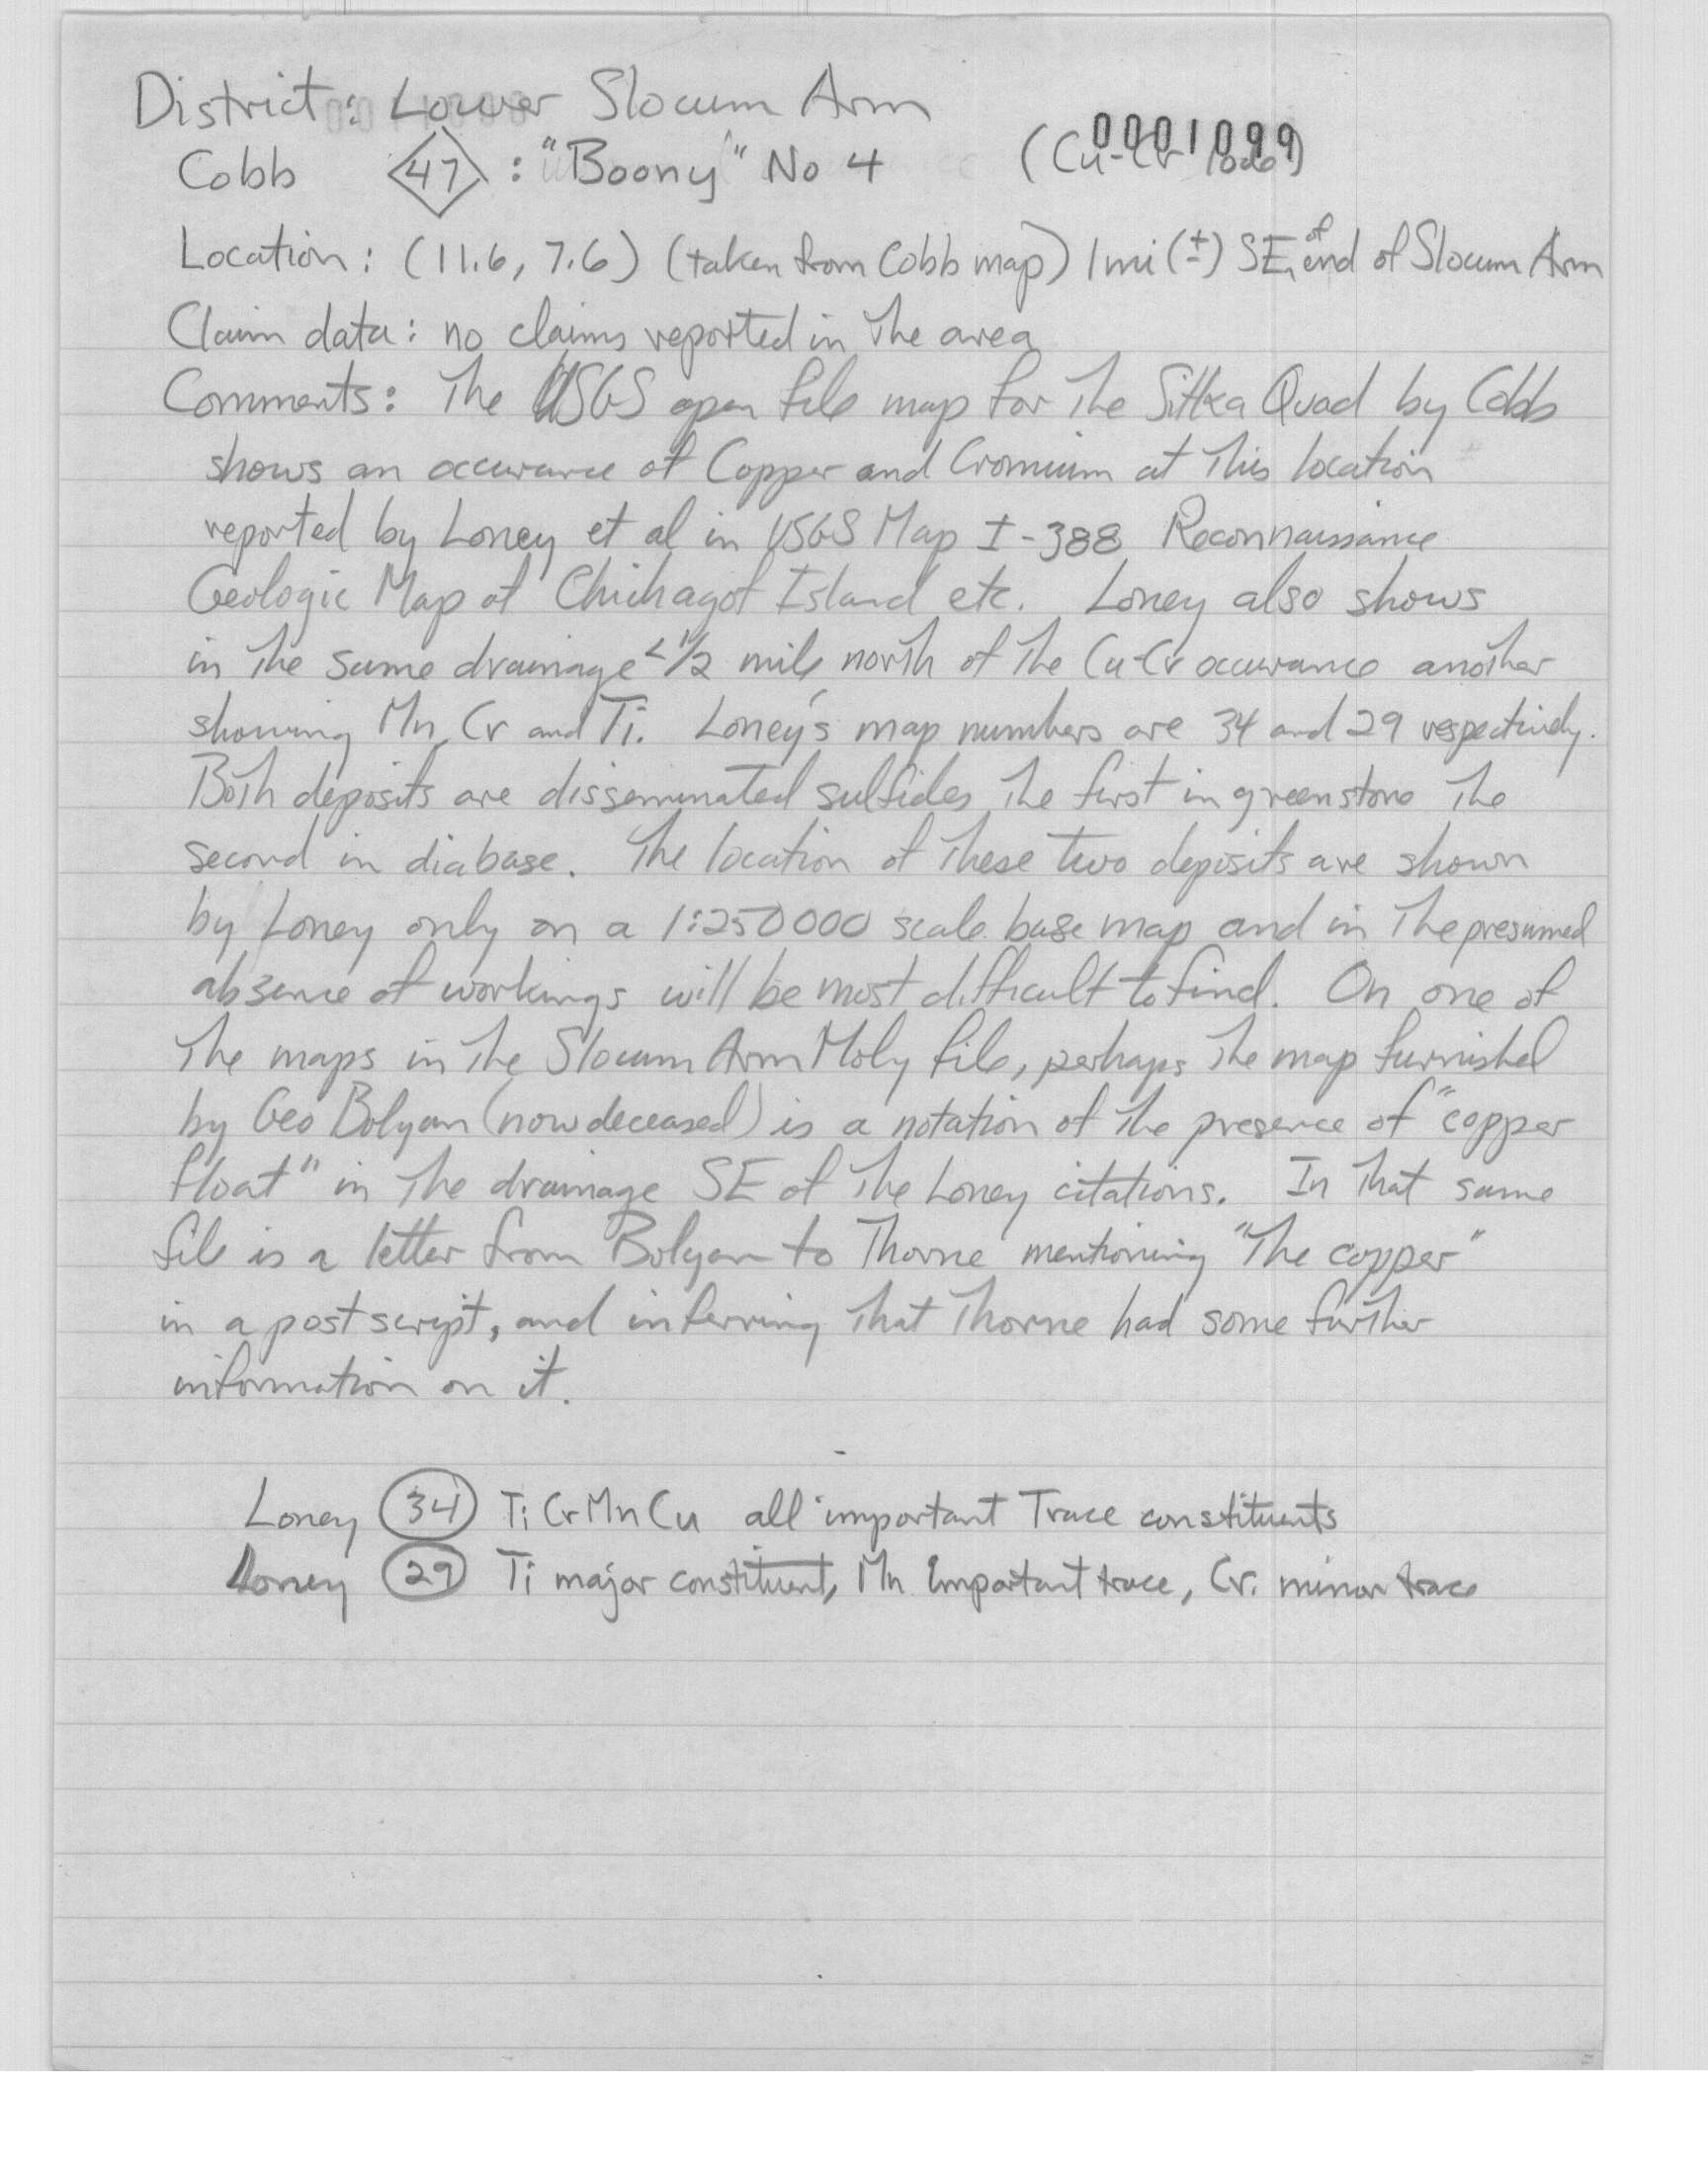 District: Lower Slocum Arm
0001099
Cobb 47 : "Boony" No 4 (Cu-Cr lode)
Location: (11.6, 7.6) (taken from Cobb map) 1 mi (±) SE of end of Slocum Arm
Claim data: no claims reported in the area
Comments: The USGS open file map for the Sitka Quad by Cobb
shows an occurance of Copper and Cromium at this location
reported by Loney et al in USGS Map I-388 Reconnaissance
Geologic Map of Chichagof Island etc. Loney also shows
in the same drainage < 1/2 mile north of the Cu-Cr occurance another
showing Mn, Cr and Ti. Loney's map numbers are 34 and 29 respectively.
Both deposits are disseminated sulfides, the first in greenstone the
second in diabase. The location of these two deposits are shown
by Loney only on a 1:250000 scale base map and in the presumed
absence of workings will be most difficult to find. On one of
the maps in the Slocum Arm Moly file, perhaps the map furnished
by Geo Bolyan (now deceased) is a notation of the presence of "copper
float" in the drainage SE of the Loney citations. In that same
file is a letter from Bolyan to Thorne mentioning "the copper"
in a post script, and inferring that Thorne had some further
information on it.
Loney 34 Ti Cr Mn Cu all important Trace constituents
Loney 29 Ti major constituent, Mn Important trace, Cr. minor trace